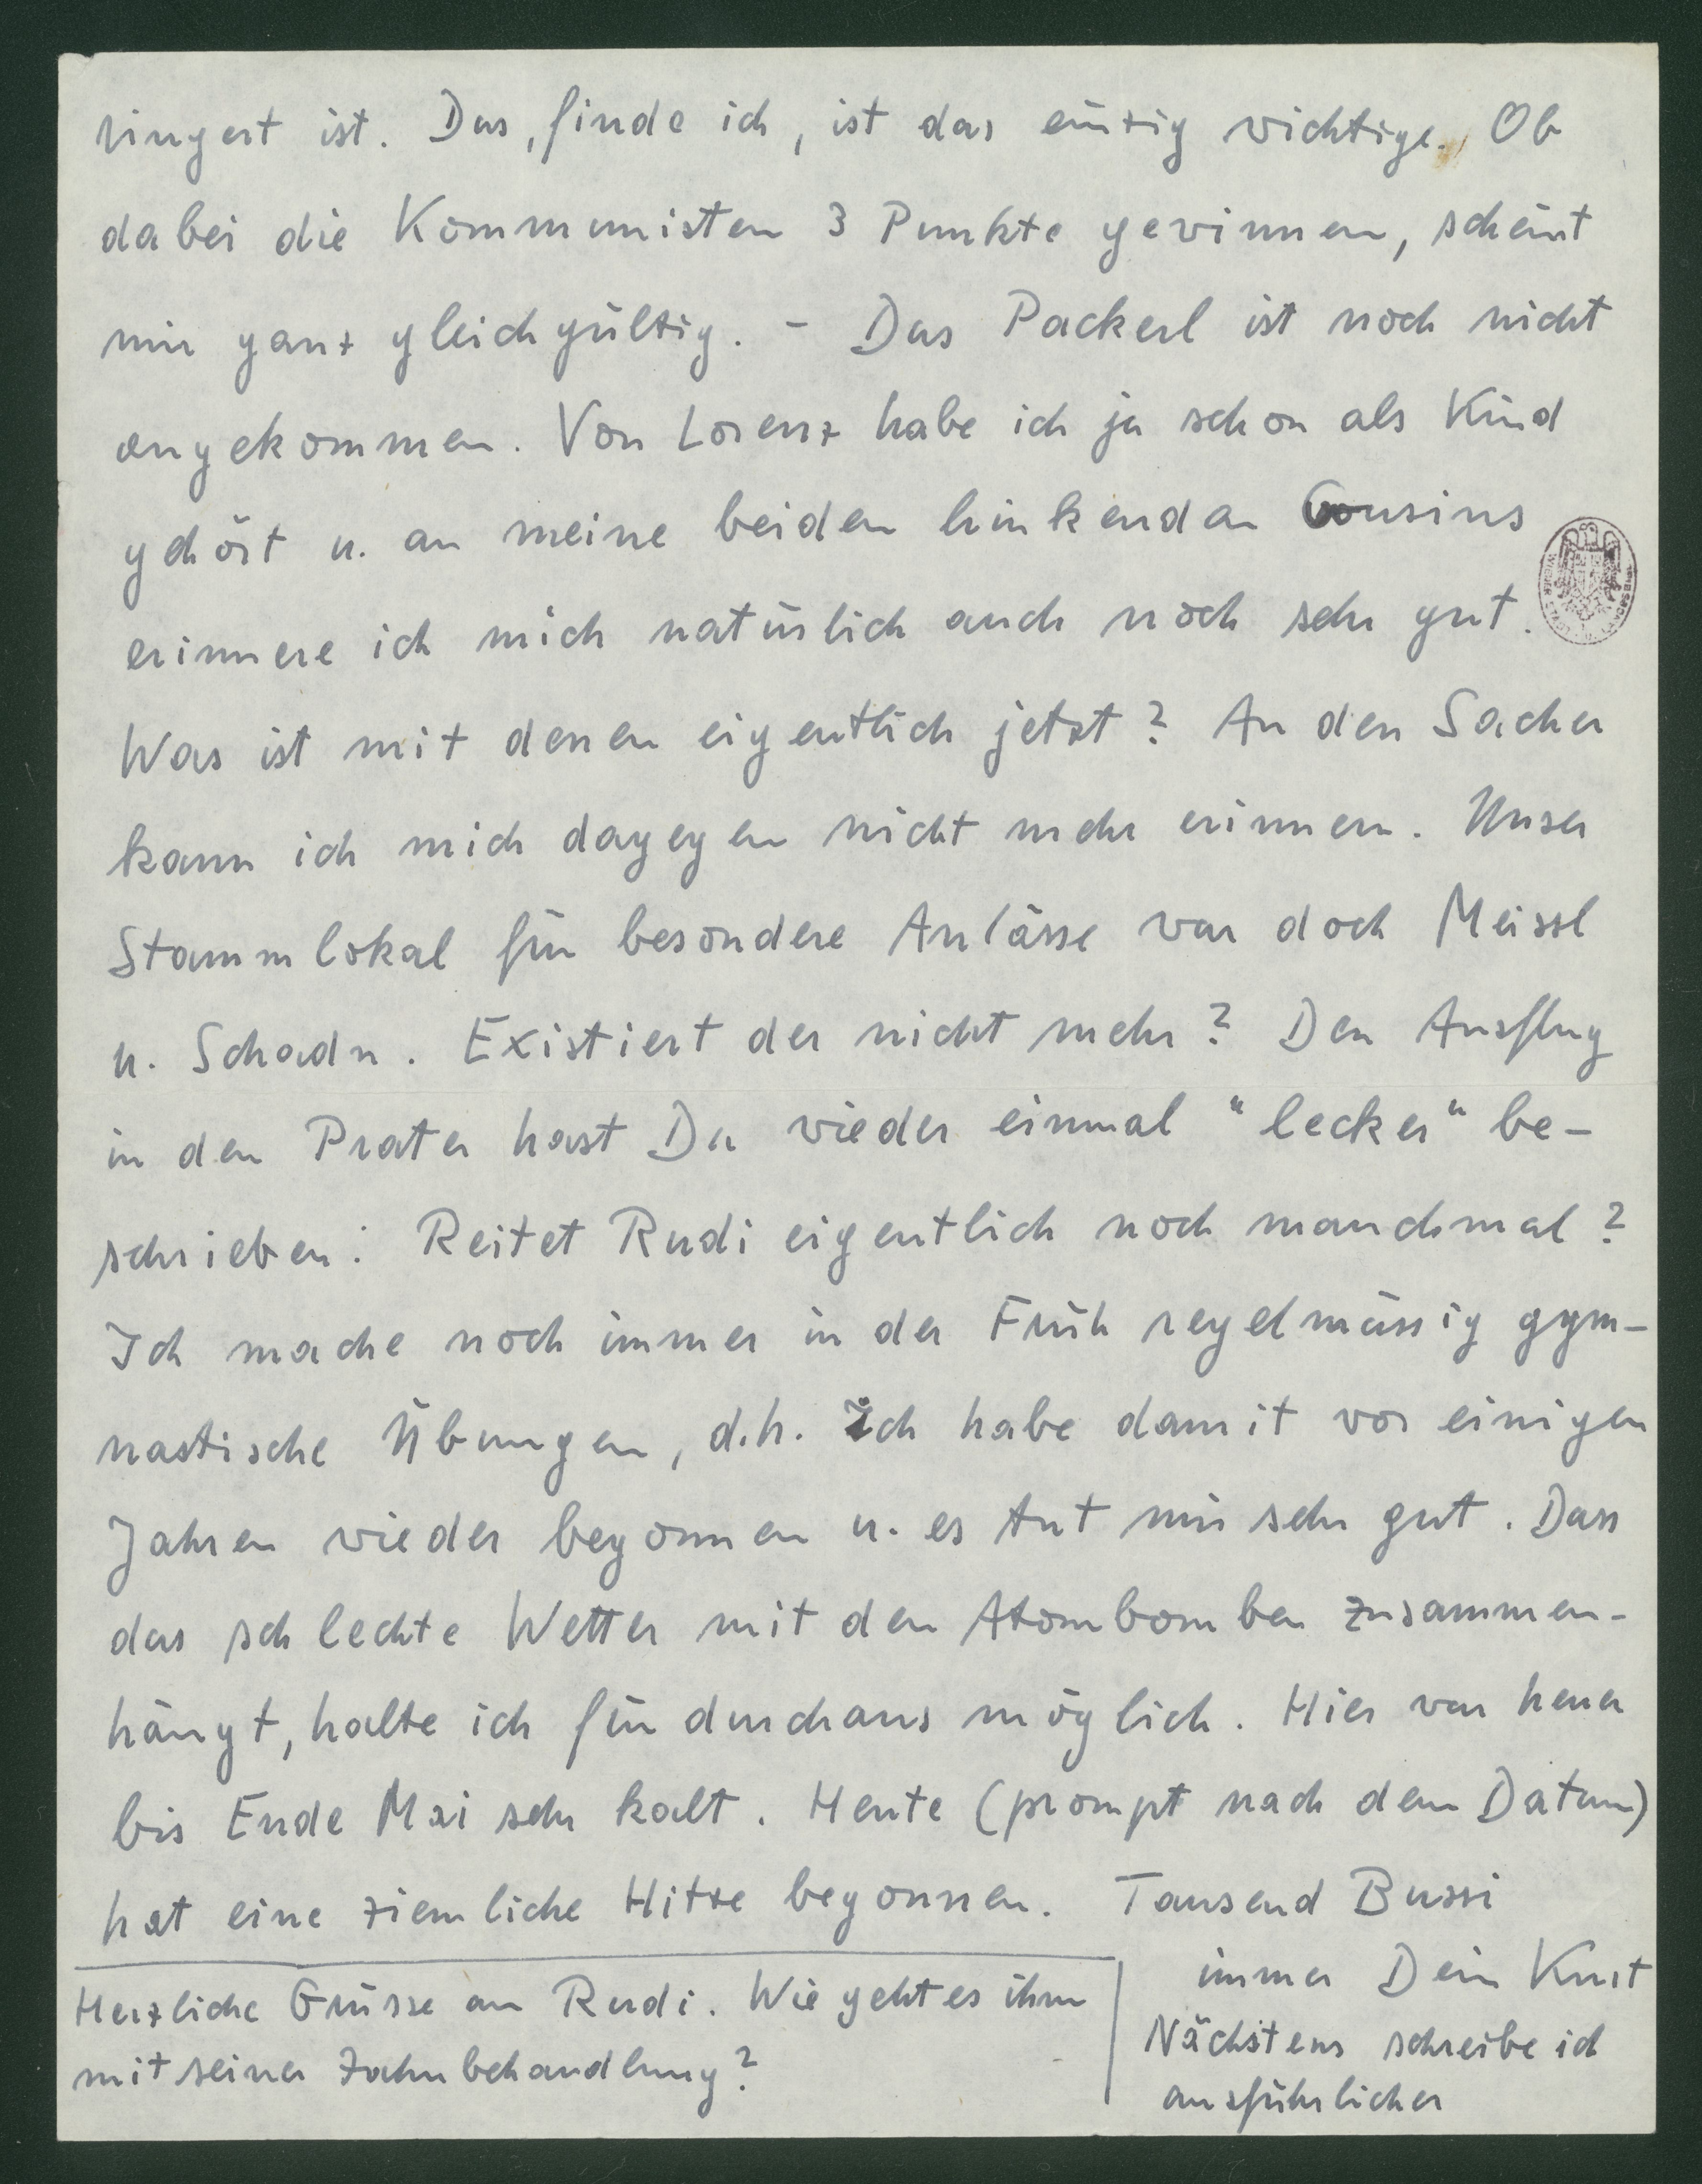 ringert ist. Das, finde ich, ist das einzig wichtige. Ob
dabei die Kommunisten 3 Punkte gewinnen, scheint
mir ganz gleichgültig. - Das Packerl ist noch nicht
angekommen. Von Lorenz habe ich ja schon als Kind
gehört u. an meine beiden hinkenden Cousins
erinnere ich mich natürlich auch noch sehr gut.
Was ist mit denen eigentlich jetzt? An den Sacher
kann ich mich dagegen nicht mehr erinnern. Unser
Stammlokal für besondere Anlässe war doch Meissl
u. Schadn. Existiert der nicht mehr? Den Ausflug
in den Prater hast Du wieder einmal "lecker" be-
schrieben. Reitet Rudi eigentlich noch manchmal?
Ich mache noch immer in der Früh regelmässig gym-
nastische Übungen, d.h. ich habe damit vor einigen
Jahren wieder begonnen u. es tut mir sehr gut. Dass
das schlechte Wetter mit den Atombomben zusammen-
hängt, halte ich für durchaus möglich. Hier war heuer
bis Ende Mai sehr kalt. Heute (prompt nach dem Datum)
hat eine ziemliche Hitze begonnen. Tausend Bussi
immer Dein Kurt
Nächstens schreibe ich
ausführlicher
Herzliche Grüsse an Rudi. Wie geht es ihm
mit seiner Zahnbehandlung?